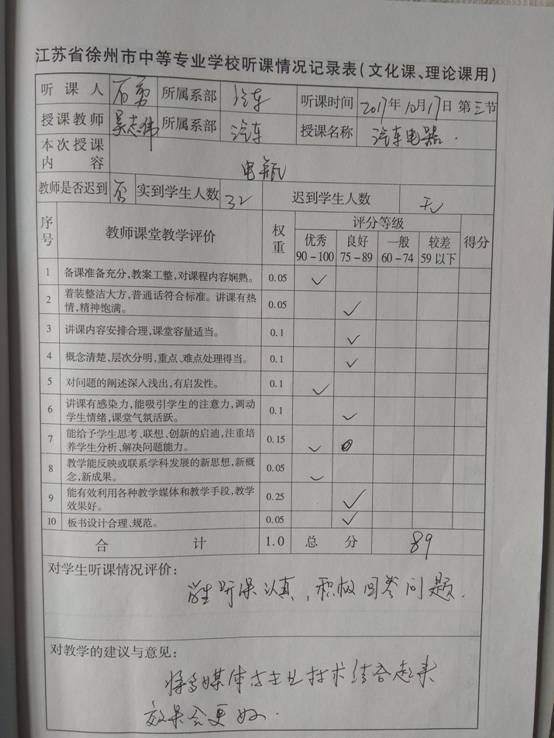 江苏省徐州市中等专业学校听课情况记录表(文化课、理论课用)
听课人 石勇 所属系部 汽车 听课时间 2017年10月17日 第三节
授课教师 吴志伟 所属系部 汽车 授课名称 汽车电器.
本次授课内容 电瓶
教师是否迟到 否 实到学生人数 32 迟到学生人数 无
序号 教师课堂教学评价 权重 评分等级 得分
优秀 90-100 良好 75-89 一般 60-74 较差 59以下
1 备课准备充分,教案工整,对课程内容娴熟。 0.05 ✓
2 着装整洁大方,普通话符合标准。讲课有热情,精神饱满。 0.05 ✓
3 讲课内容安排合理,课堂容量适当。 0.1 ✓
4 概念清楚,层次分明,重点、难点处理得当。 0.1 ✓
5 对问题的阐述深入浅出,有启发性。 0.1 ✓
6 讲课有感染力,能吸引学生的注意力,调动学生情绪,课堂气氛活跃。 0.1 ✓
7 能给予学生思考、联想、创新的启迪,注重培养学生分析、解决问题能力。 0.15 ✓
8 教学能反映或联系学科发展的新思想,新概念,新成果。 0.05 ✓
9 能有效利用各种教学媒体和教学手段,教学效果好。 0.25 ✓
10 板书设计合理、规范。 0.05 ✓
合计 1.0 总分 89
对学生听课情况评价:
学生听课认真,积极回答问题.
对教学的建议与意见:
将多媒体与专业技术结合起来
效果会更好.